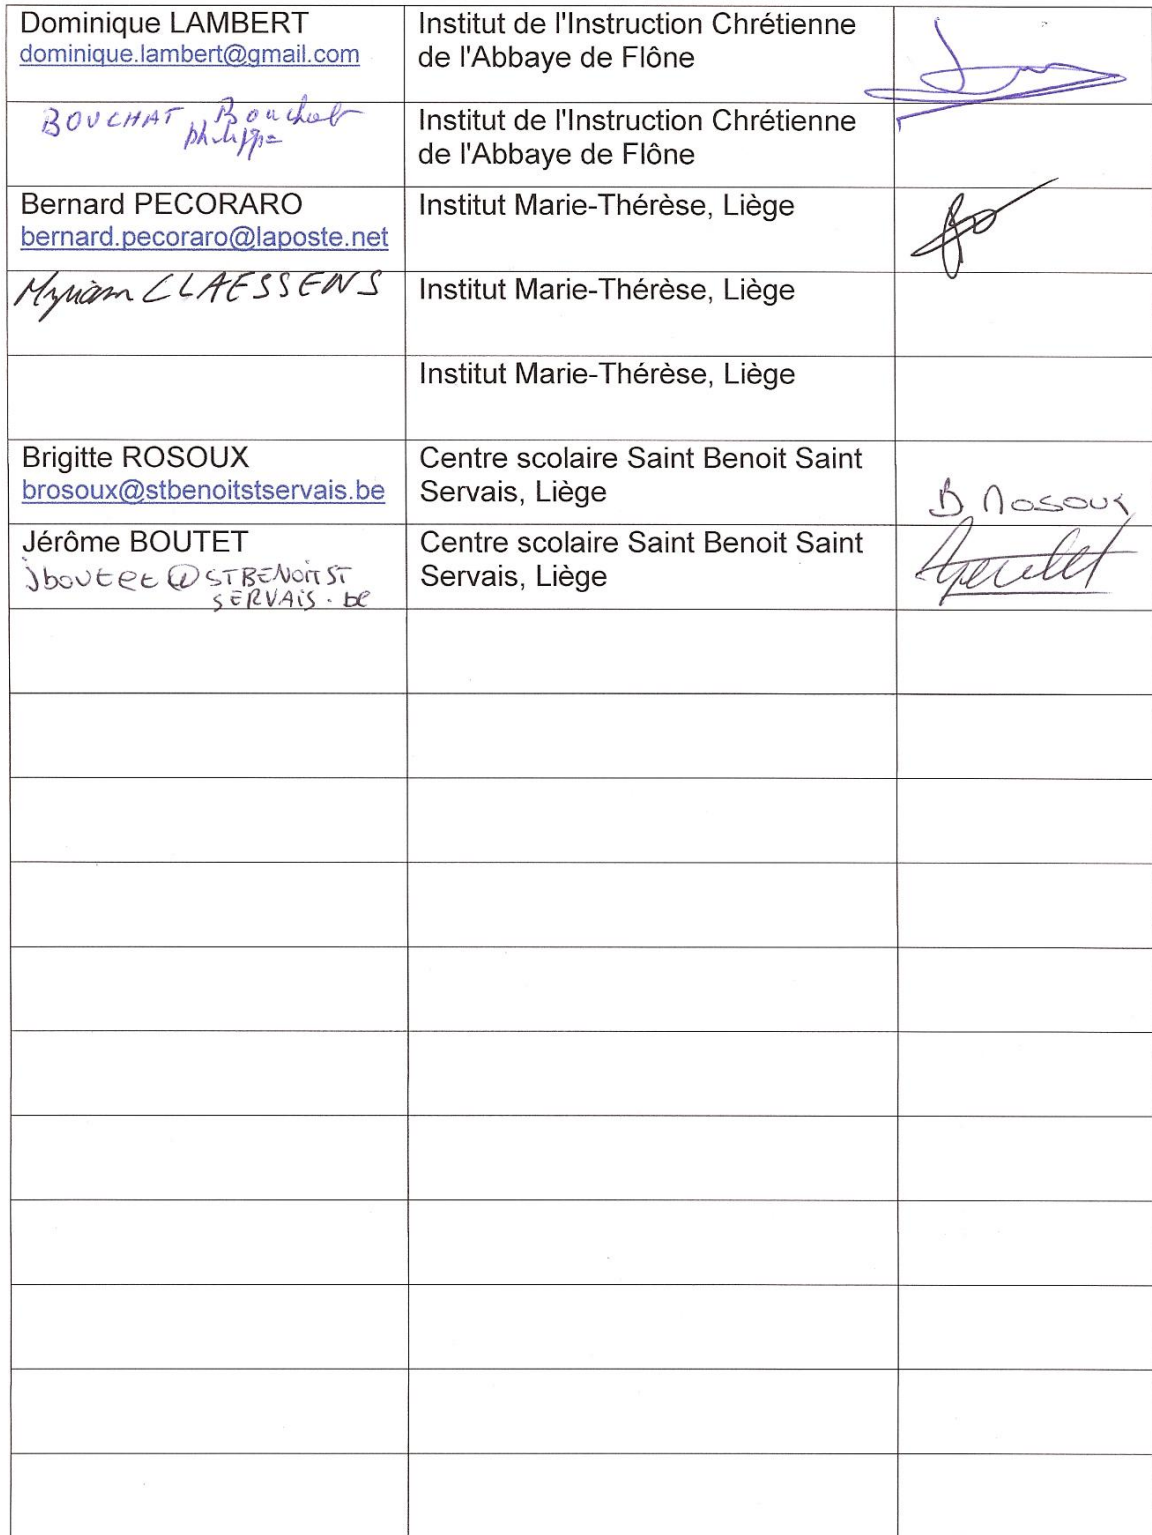 Dominique LAMBERT
dominique.lambert@gmail.com
Institut de l'Instruction Chrétienne
de l'Abbaye de Flône
BOUCHAT Bouchat
philippe
Institut de l'Instruction Chrétienne
de l'Abbaye de Flône
Bernard PECORARO
bernard.pecoraro@laposte.net
Institut Marie-Thérèse, Liège
Myriam CLAESSENS
Institut Marie-Thérèse, Liège
Institut Marie-Thérèse, Liège
Brigitte ROSOUX
brosoux@stbenoitstservais.be
Centre scolaire Saint Benoit Saint
Servais, Liège
B Rosoux
Jérôme BOUTET
jboutet@STBENOITST
SERVAIS.be
Centre scolaire Saint Benoit Saint
Servais, Liège